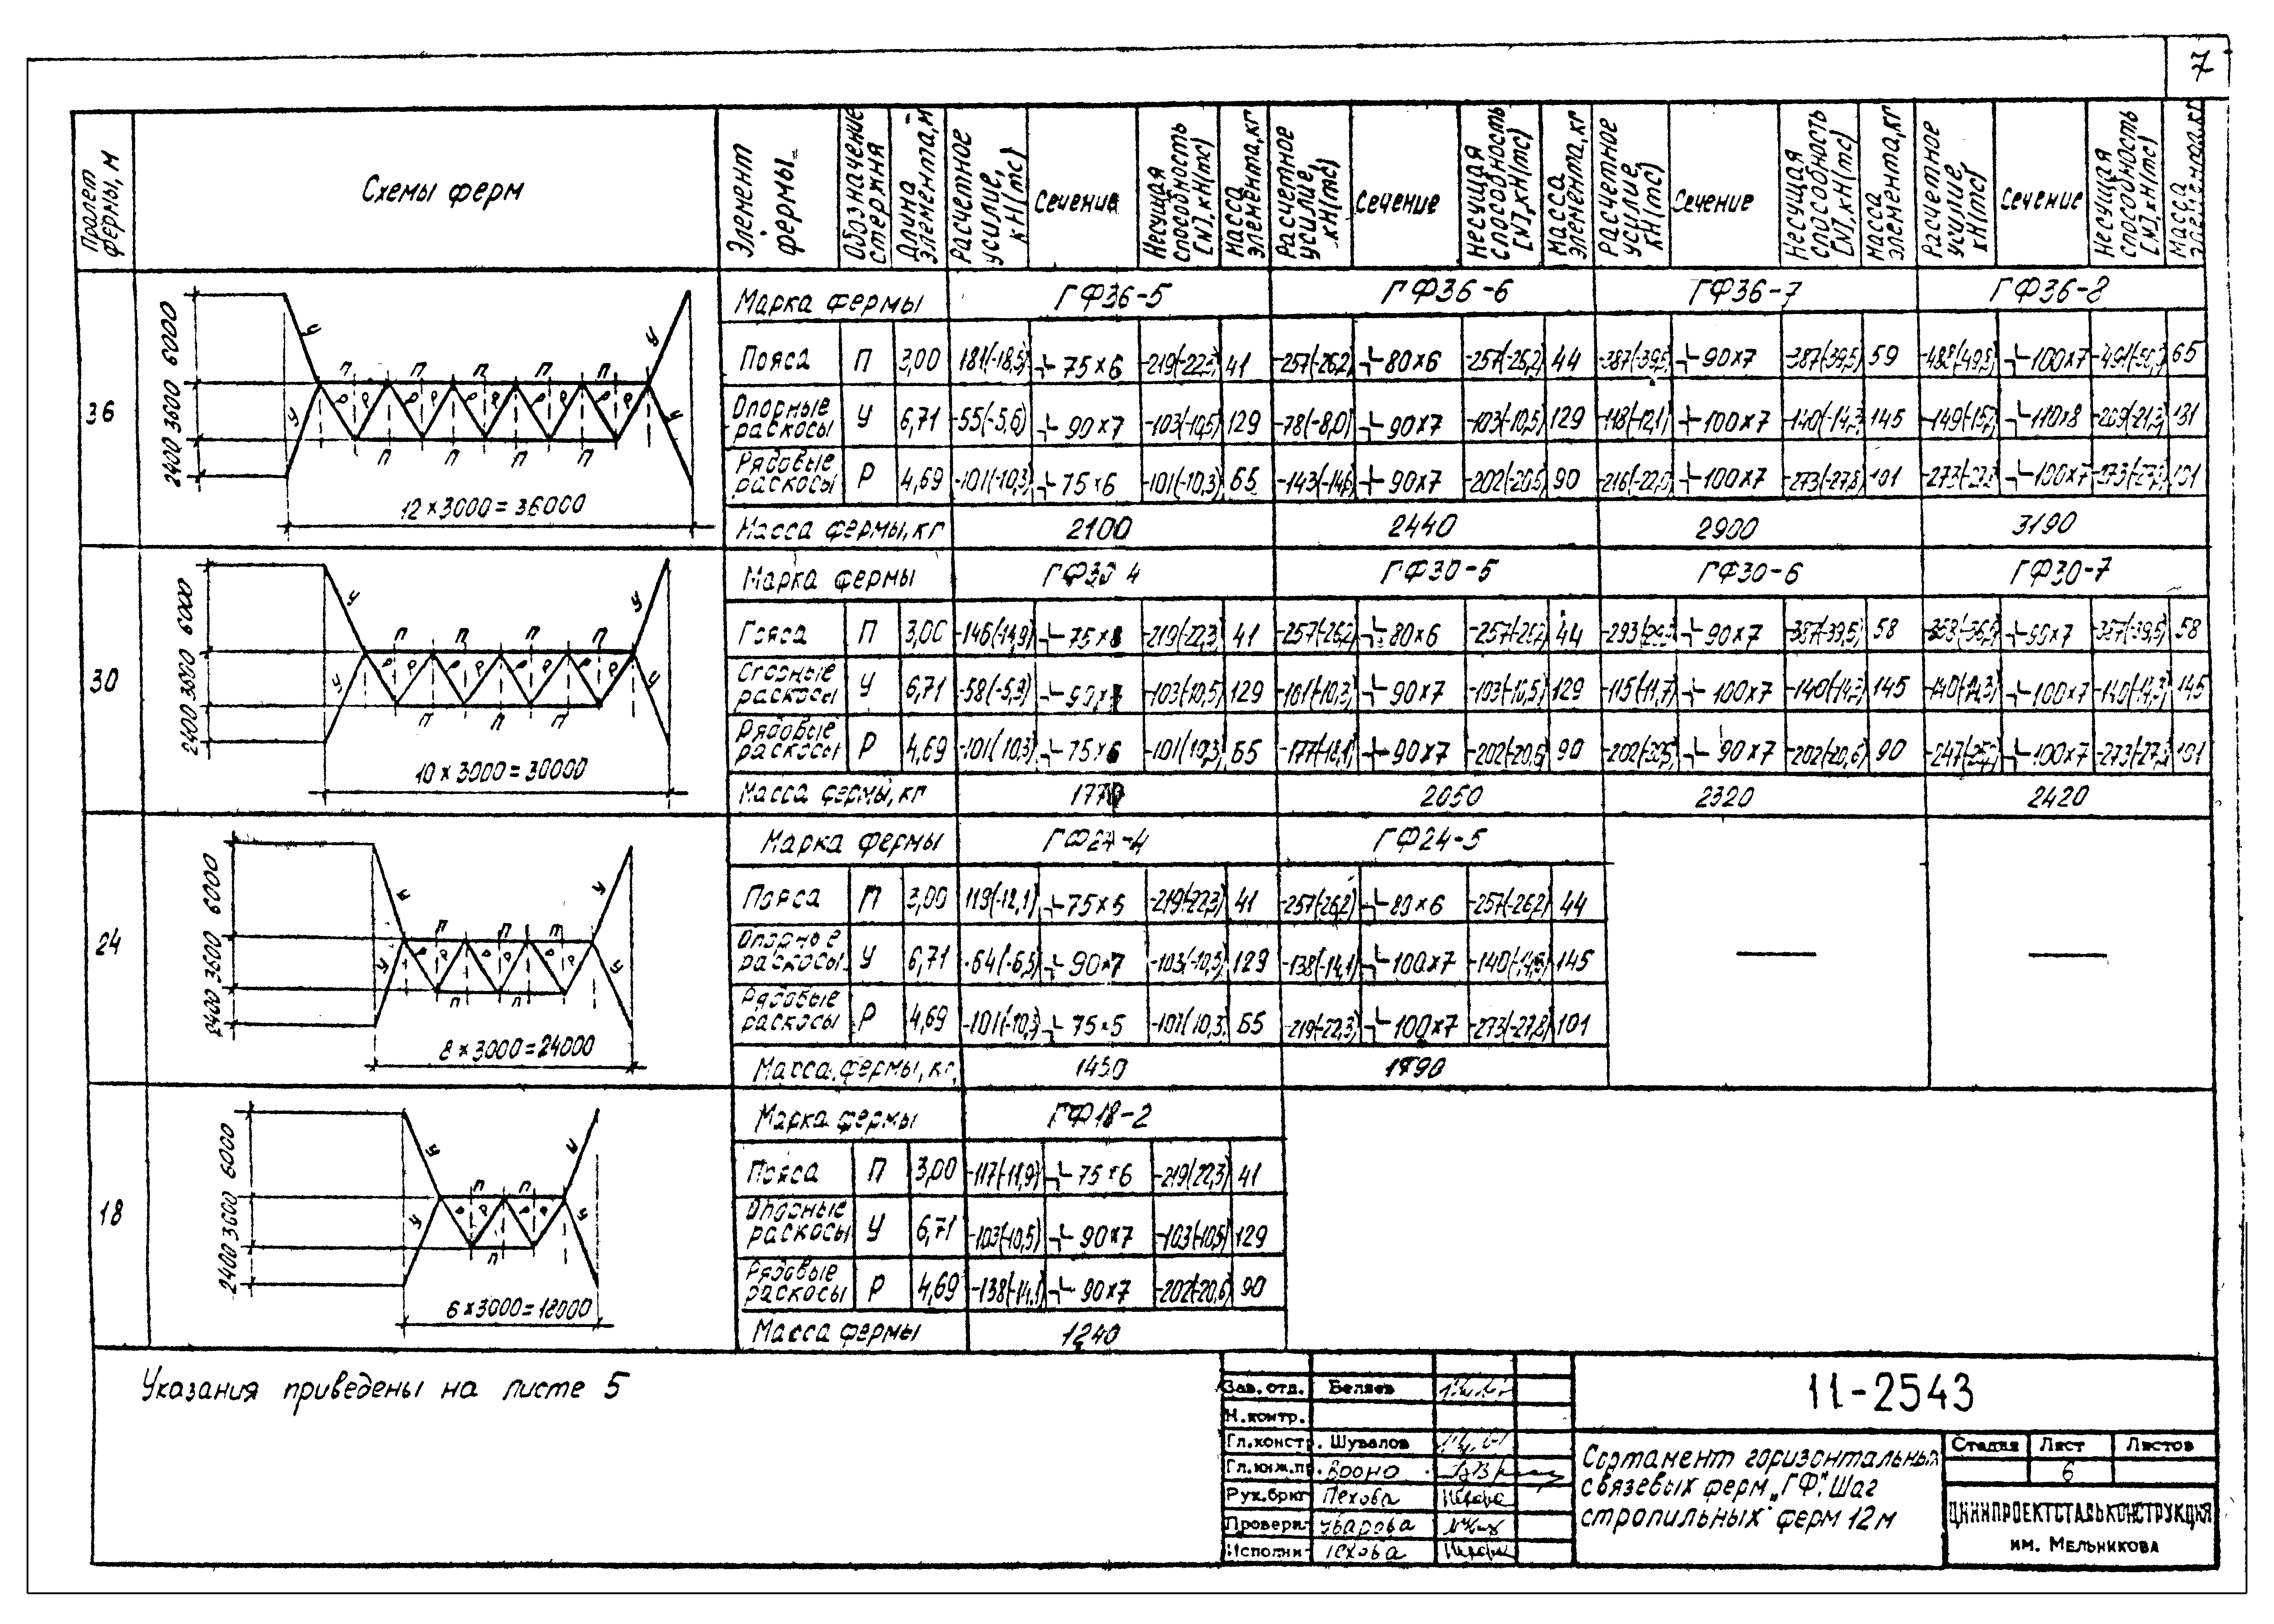 7
Пролет фермы, м
Схемы ферм
Элемент фермы
Обозначение стержня
Длина элемента, м
Расчетное усилие, кН(тс)
Сечение
Несущая способность [N], кН(тс)
Масса элемента, кг
Расчетное усилие, кН(тс)
Сечение
Несущая способность [N], кН(тс)
Масса элемента, кг
Расчетное усилие, кН(тс)
Сечение
Несущая способность [N], кН(тс)
Масса элемента, кг
Расчетное усилие, кН(тс)
Сечение
Несущая способность [N], кН(тс)
Масса элемента, кг
36
6000
3600
2400
12×3000=36000
Марка фермы ГФ36-5 ГФ36-6 ГФ36-7 ГФ36-8
Пояса П 3,00 181(-18,5) 75×6 41 80×6 44 90×7 -387(39,5) 59 100×7 65
Опорные раскосы У 6,71 -55(-5,6) 90×7 -103(-10,5) 129 -78(-8,0) 90×7 -103(-10,5) 129 100×7 145 110×8
Рядовые раскосы Р 4,69 -101(-10,3) 75×6 -101(-10,3) 65 90×7 90 100×7 -273(-27,8) 101 100×7 101
Масса фермы, кг 2100 2440 2900 3190
30
6000
3600
2400
10×3000=30000
Марка фермы ГФ30 4 ГФ30-5 ГФ30-6 ГФ30-7
Пояса П 3,00 41 -257(-26,2) 80×6 44 90×7 58 90×7 58
Опорные раскосы У 6,71 -58(-5,9) -103(-10,5) 129 90×7 -103(-10,5) 129 -115(-11,7) 100×7 145 100×7 145
Рядовые раскосы Р 4,69 -101(10,3) 75×6 65 90×7 90 90×7 -202(-20,6) 90 100×7 101
Масса фермы, кг 1770 2050 2320 2420
24
6000
3600
2400
8×3000=24000
Марка фермы ГФ24-4 ГФ24-5
Пояса П 3,00 119(-12,1) -219(-22,3) 41 -257(-26,2) 80×6 -257(-26,2) 44
Опорные раскосы У 6,71 -64(-6,5) 90×7 129 -138(-14,1) 100×7 145
Рядовые раскосы Р 4,69 65 -219(-22,3) 100×7 -273(-27,8) 101
Масса фермы, кг 1450 1790
18
6000
3600
2400
6×3000=18000
Марка фермы ГФ18-2
Пояса П 3,00 -117(-11,9) 75×6 -219(22,3) 41
Опорные раскосы У 6,71 -103(-10,5) 90×7 -103(-10,5) 129
Рядовые раскосы Р 4,69 -138(-14,1) 90×7 -202(-20,6) 90
Масса фермы 1240
Указания приведены на листе 5
Зав.отд. Беляев
Н.контр.
Гл.констр. Шувалов
Гл.инж.пр. Вроно
Рук.бриг Пехова
Проверил Уварова
Исполнил Пехова
11-2543
Сортамент горизонтальных
связевых ферм „ГФ". Шаг
стропильных ферм 12м
Стадия Лист Листов
6
ЦНИИПРОЕКТСТАЛЬКОНСТРУКЦИЯ
им. Мельникова